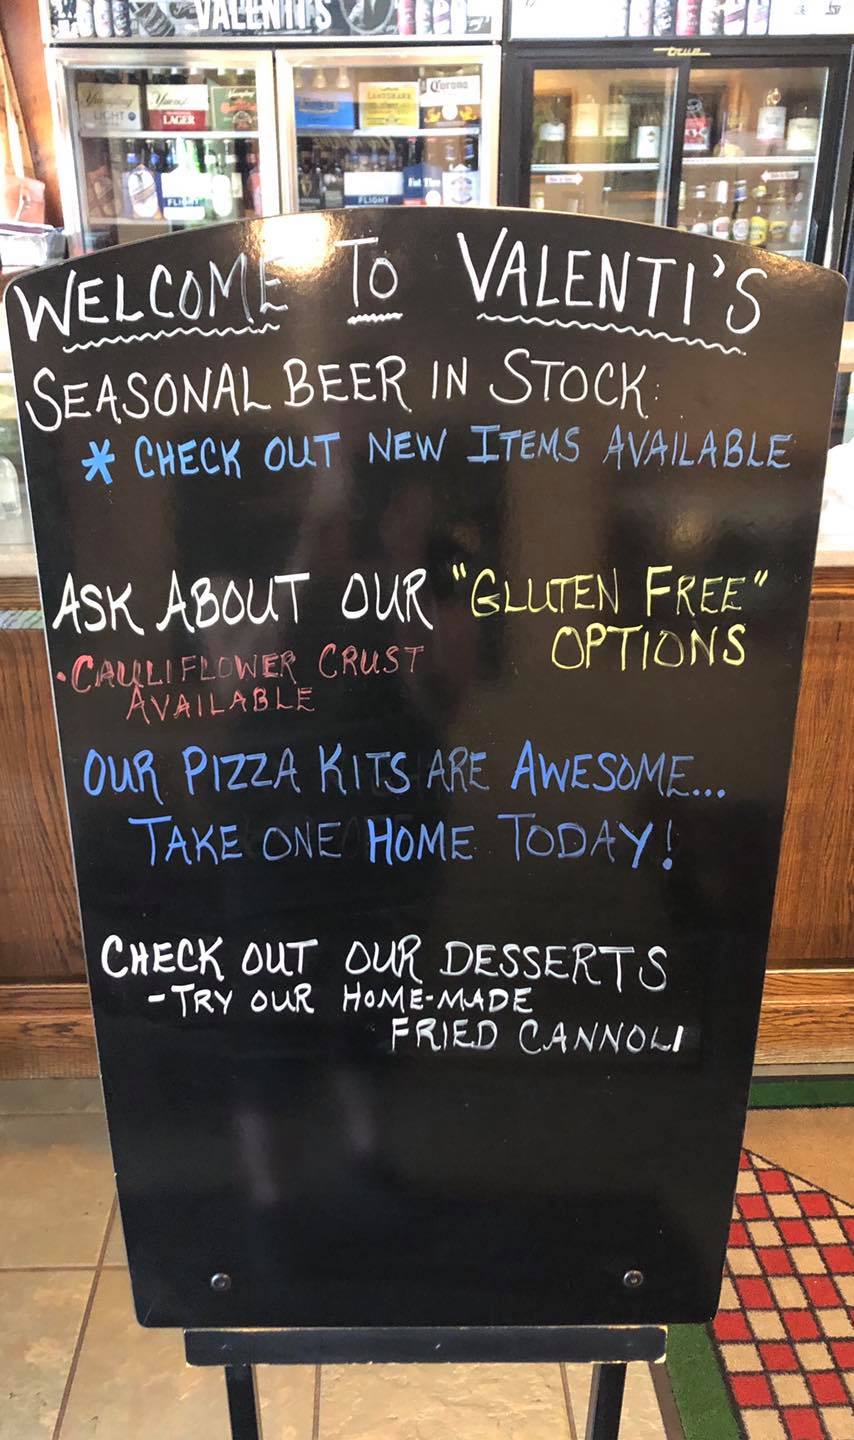 VALENTI'S
true
LIGHT
LAGER
LANDSHARK
Corona
FLIGHT
FLIGHT
WELCOME TO VALENTI'S
SEASONAL BEER IN STOCK:
* CHECK OUT NEW ITEMS AVAILABLE
ASK ABOUT OUR "GLUTEN FREE"
OPTIONS
·CAULIFLOWER CRUST
AVAILABLE
OUR PIZZA KITS ARE AWESOME...
TAKE ONE HOME TODAY!
CHECK OUT OUR DESSERTS
-TRY OUR HOME-MADE
FRIED CANNOLI